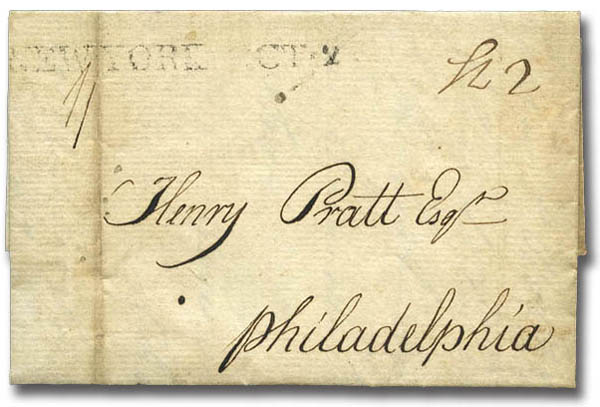 NEW YORK OCT 2
Sh 2
Henry Pratt Esqr
Philadelphia